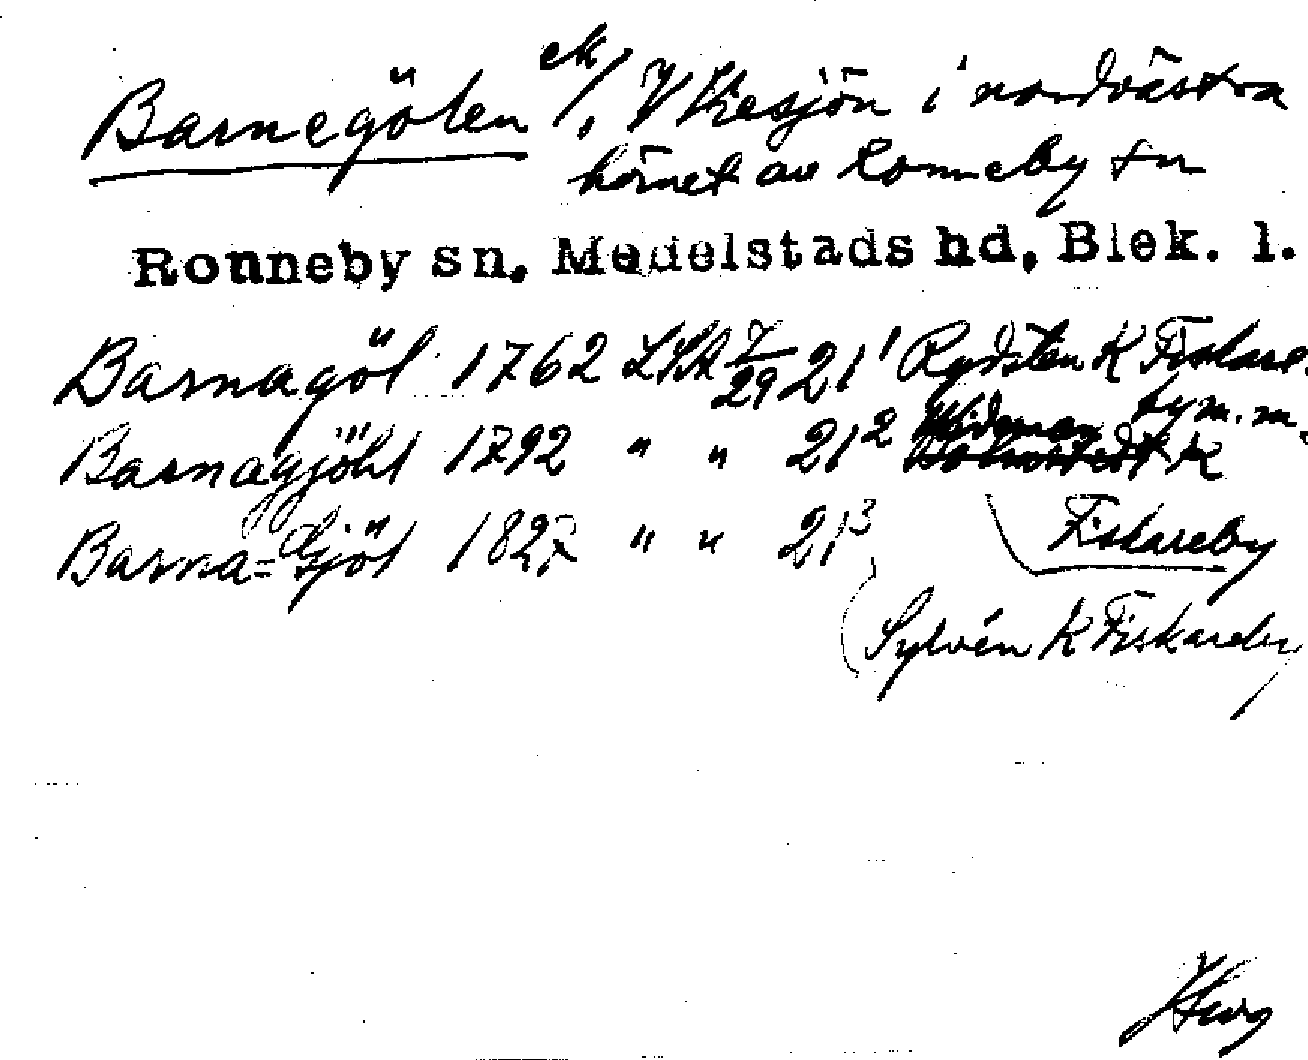 Barnegölen ek/, V Kesjön i nordvästra
hörnet av Ronneby sn
Ronneby sn. Medelstads hd, Blek. l.
Barnagöl 1762 LSA 7/29 21¹ Rydsten K Fiskare-
by m. m.
Barnagjöhl 1792 " " 21² Wideman K
Fiskareby
Barna=Gjöl 1827 " " 21³
Sylvén K Fiskareby